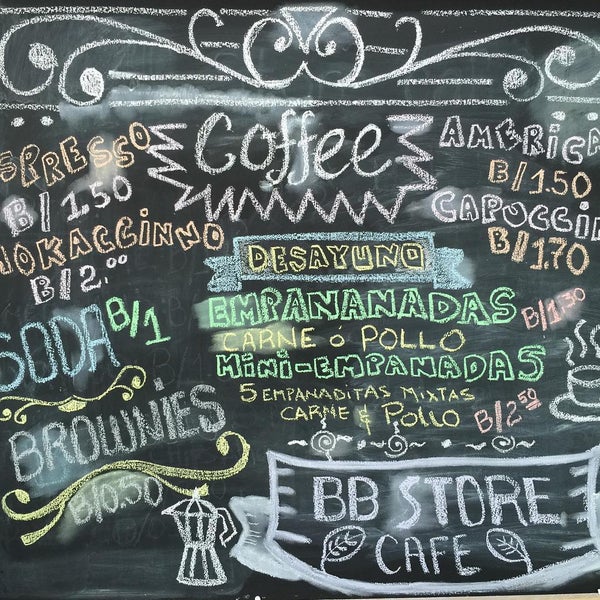 Coffee
SPRESSO
B/1.50
MOKACCINNO
B/2.00
AMERICA
B/1.50
CAPUCCIN
B/1.70
SODA B/1
BROWNIES
B/0.50
DESAYUNO
EMPANANADAS B/1.30
CARNE ó POLLO
MiNi-EMPANADAS
5 EMPANADITAS MIXTAS
CARNE & POLLO B/2.50
BB STORE
CAFE